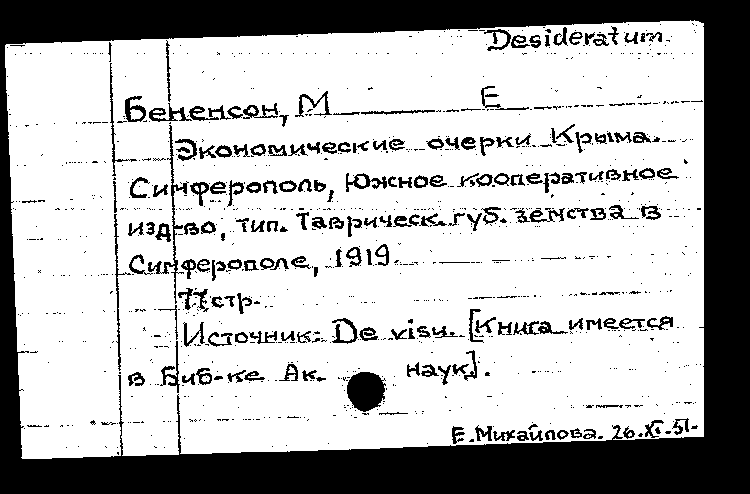 Desideratum.
Бененсон, М E
Экономические очерки Крыма.
Симферополь, Южное кооперативное
изд-во, тип. Таврическ. губ. земства в
Симферополе, 1919.
77 стр.
Источник: De visu. [Книга имеется
в Биб-ке Ак. наук].
Е. Михайлова. 26.XI.51.